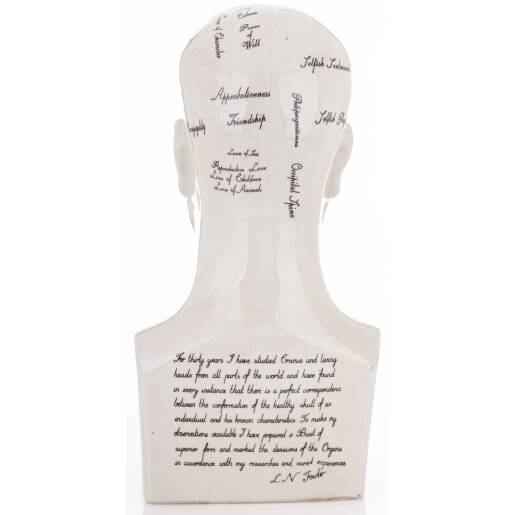 Power
of
Will
Approbativeness
Friendship
Love of Sex
Reproductive Love
Love of Children
Love of Animals
Philoprogenitiveness
Occipital Spine
Selfish
Selfish
For thirty years I have studied Crania and living
heads from all parts of the world and have found
in every instance that there is a perfect correspondence
between the conformation of the healthy skull of an
individual and his known characteristics To make my
observations available I have prepared a Bust of
superior form and marked the divisions of the Organs
in accordance with my researches and varied experiences
L.N Fowler